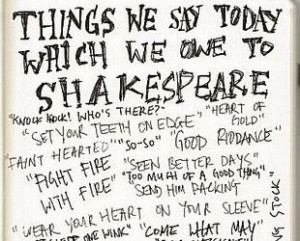 THINGS WE SAY TODAY
WHICH WE OWE TO
SHAKESPEARE
"KNOCK KNOCK! WHO'S THERE?"
"HEART OF GOLD"
"SET YOUR TEETH ON EDGE"
FAINT HEARTED"
"SO-SO"
"GOOD RIDDANCE"
"FIGHT FIRE
WITH FIRE"
"SEEN BETTER DAYS"
"TOO MUCH OF A GOOD THING"
"SEND HIM PACKING
"WEAR YOUR HEART ON YOUR SLEEVE"
ONE WINK"
"COME WHAT MAY
STOCK